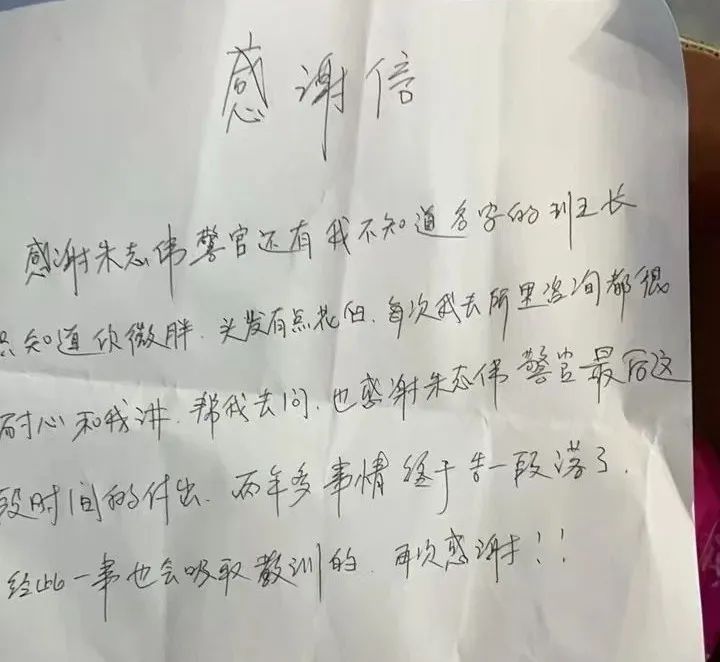 感谢信
感谢朱志伟警官还有我不知道名字的班长
只知道你微胖.头发有点花白.每次我去所里咨询都很
耐心和我讲.帮我去问.也感谢朱志伟警官最后这
段时间的付出.两年多事情终于告一段落了.
经此一事也会吸取教训的.再次感谢!!